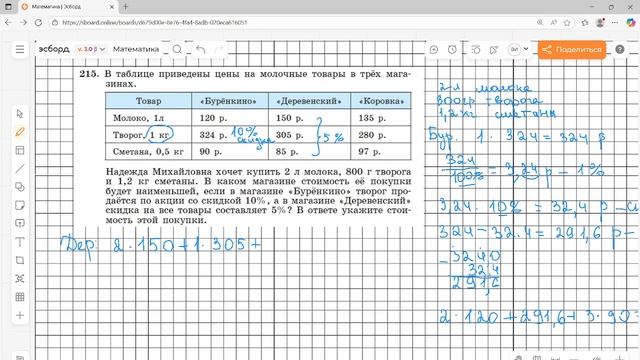 Математика | Эсборд
https://sboard.online/boards/d679d00e-8e76-4fa4-8adb-020eca616051
эсборд v. 3.0 β Математика
Поделиться
215. В таблице приведены цены на молочные товары в трёх мага-
зинах.
Товар «Бурёнкино» «Деревенский» «Коровка»
Молоко, 1л 120 р. 150 р. 135 р.
Творог, 1 кг 324 р. 10% скидка 305 р. 280 р.
5%
Сметана, 0,5 кг 90 р. 85 р. 97 р.
Надежда Михайловна хочет купить 2 л молока, 800 г творога
и 1,2 кг сметаны. В каком магазине стоимость её покупки
будет наименьшей, если в магазине «Бурёнкино» творог про-
даётся по акции со скидкой 10%, а в магазине «Деревенский»
скидка на все товары составляет 5%? В ответе укажите стои-
мость этой покупки.
Дер: 2·150+1·305+
2л молока
творога
1,2кг сметаны
Бур. 1·324=324 р
324
100% = 3,24 р - 1%
3,24·10% = 32,4 р
324-32.4=291,6 р
3240
- 324
291,6
2·120+291,6+3·90=